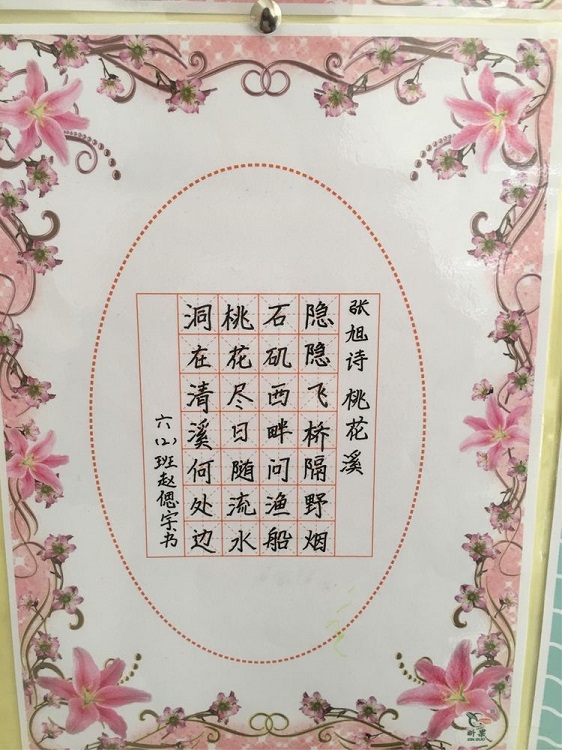 张旭诗 桃花溪
隐隐飞桥隔野烟
石矶西畔问渔船
桃花尽日随流水
洞在清溪何处边
六（2）班赵偲宇书